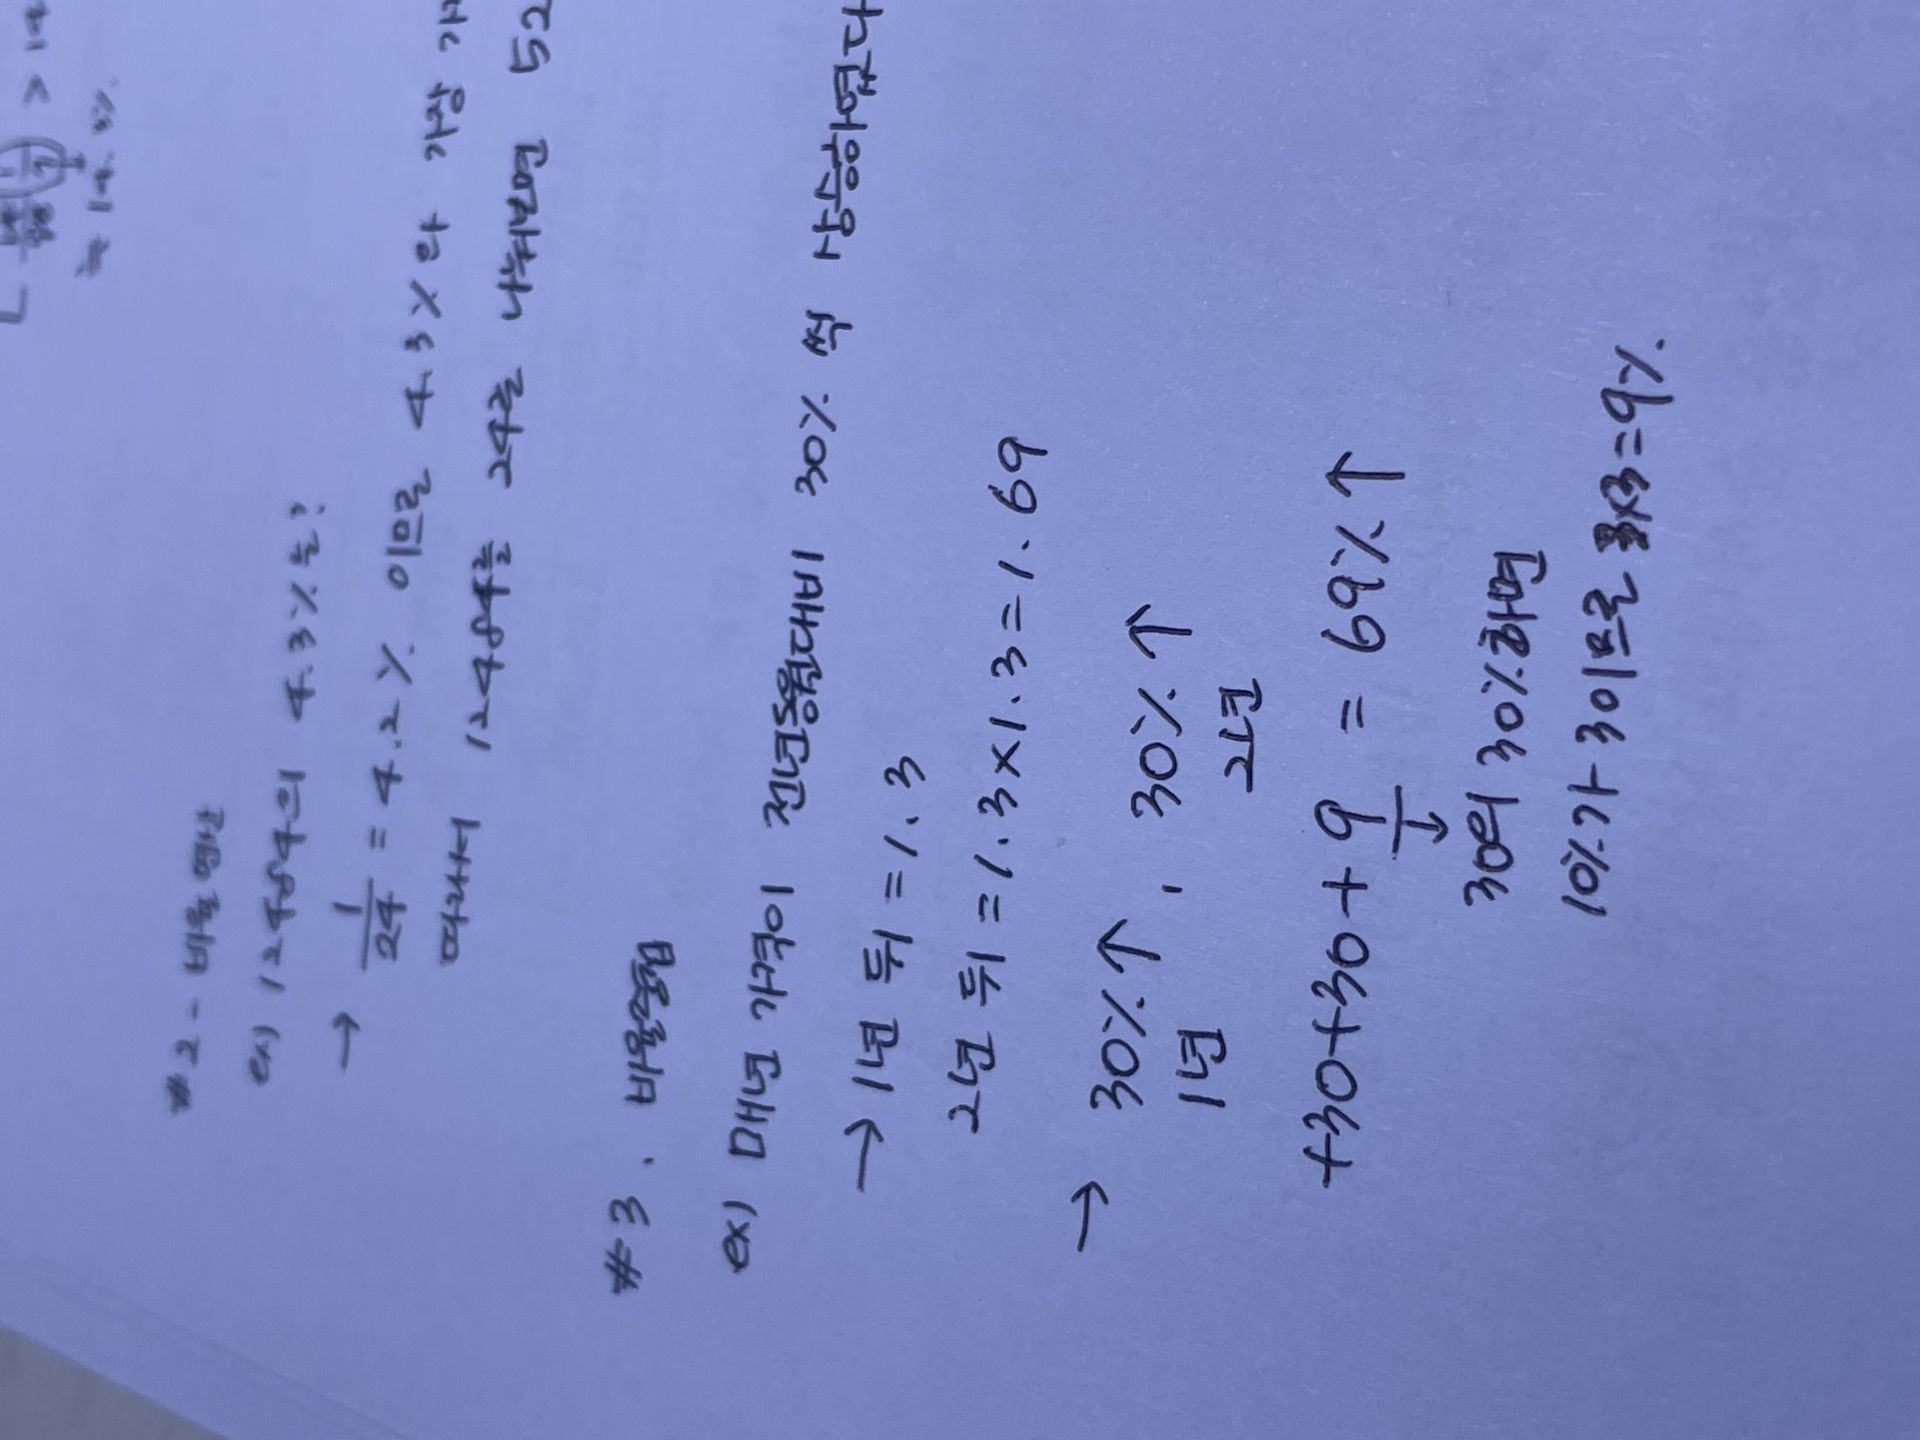 > 12
= 12.5%
#2 - 비율 형태
ex) 12484의 4.3%는?
→ 1/24 = 4.2% 이므로 4.3%와 가장
따라서 12484를 24로 나눠보면 52
#3. 비율혼합
ex) 매년 가격이 전년동월대비 30% 씩 상승했다
→ 1년 뒤 = 1.3
2년 뒤 = 1.3×1.3=1.69
→ 30%↑, 30%↑
1년 2년
+30+30+9 = 69%↑
↓
30의 30%하면
10%가 3이므로 3×3=9%